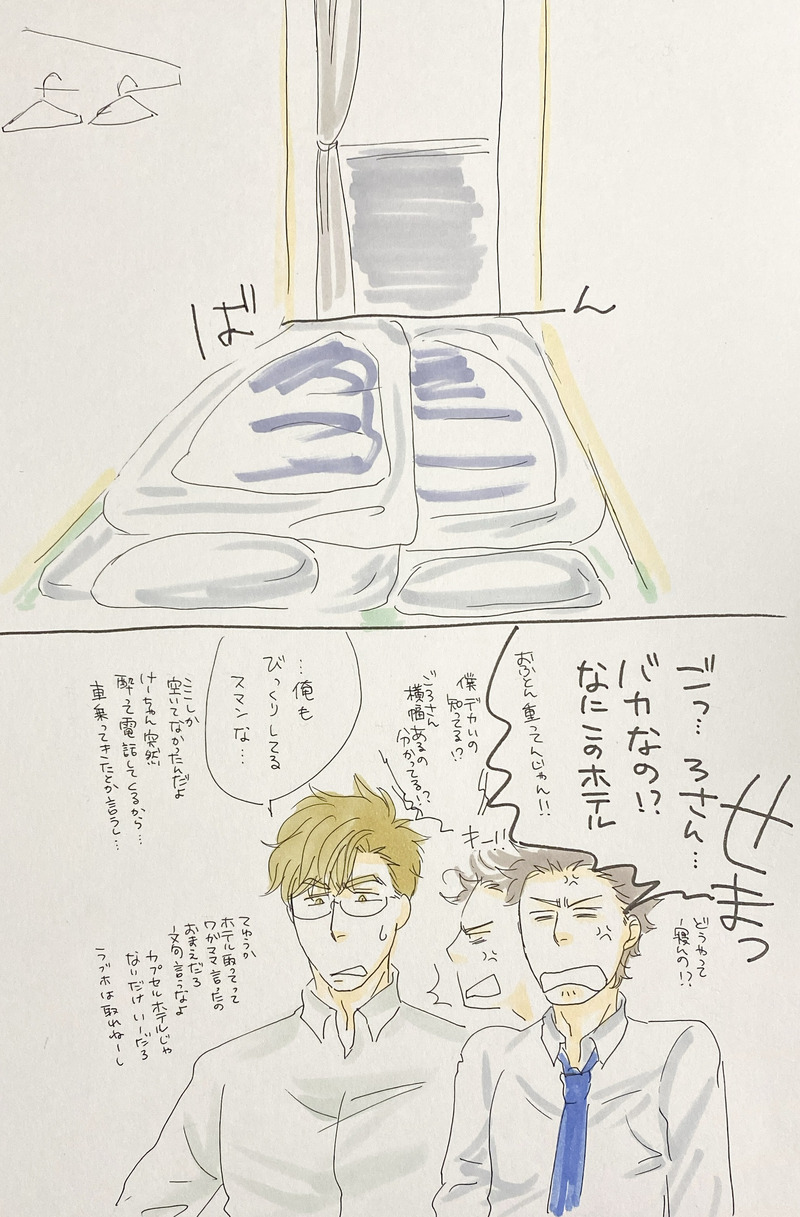 ばん
せまっ
どうやって
寝んの!?
ごっ…ろさん…
バカなの!?
なにこのホテル
おふとん重ってんじゃん!!
僕デカいの
知ってる!?
ごろさん
横幅あるの
分かってる!?
キー!!
…俺も
びっくりしてる
スマンな…
ここしか
空いてなかったんだよ
けーちゃん突然
酔って電話してくるから…
車乗ってきたとか言うし…
てゆうか
ホテル取ってって
ワガママ言ったの
おまえだろ
文句言うなよ
カプセルホテルじゃ
ないだけいーだろ
ラブホは取れねーし